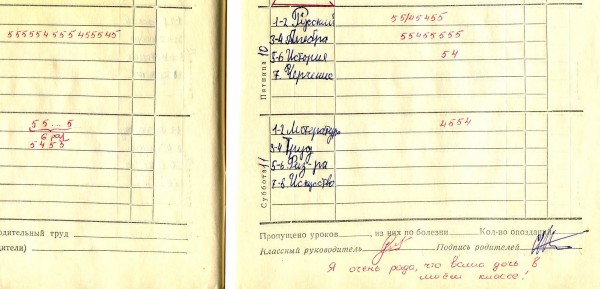 555554555455545
55...5
6 раз
5455
водительный труд
дители)
Пятница 10
1-2 Русский 5545455
3-4 Алгебра 55455555
5-6 История 54
7. Черчение
Суббота 11
1-2 Литература 4554
3-4 Труд
5-6 Физ-ра
7-8 Искусство
Пропущено уроков из них по болезни Кол-во опозданий
Классный руководитель Подпись родителей
Я очень рада, что ваша дочь в
моём классе!